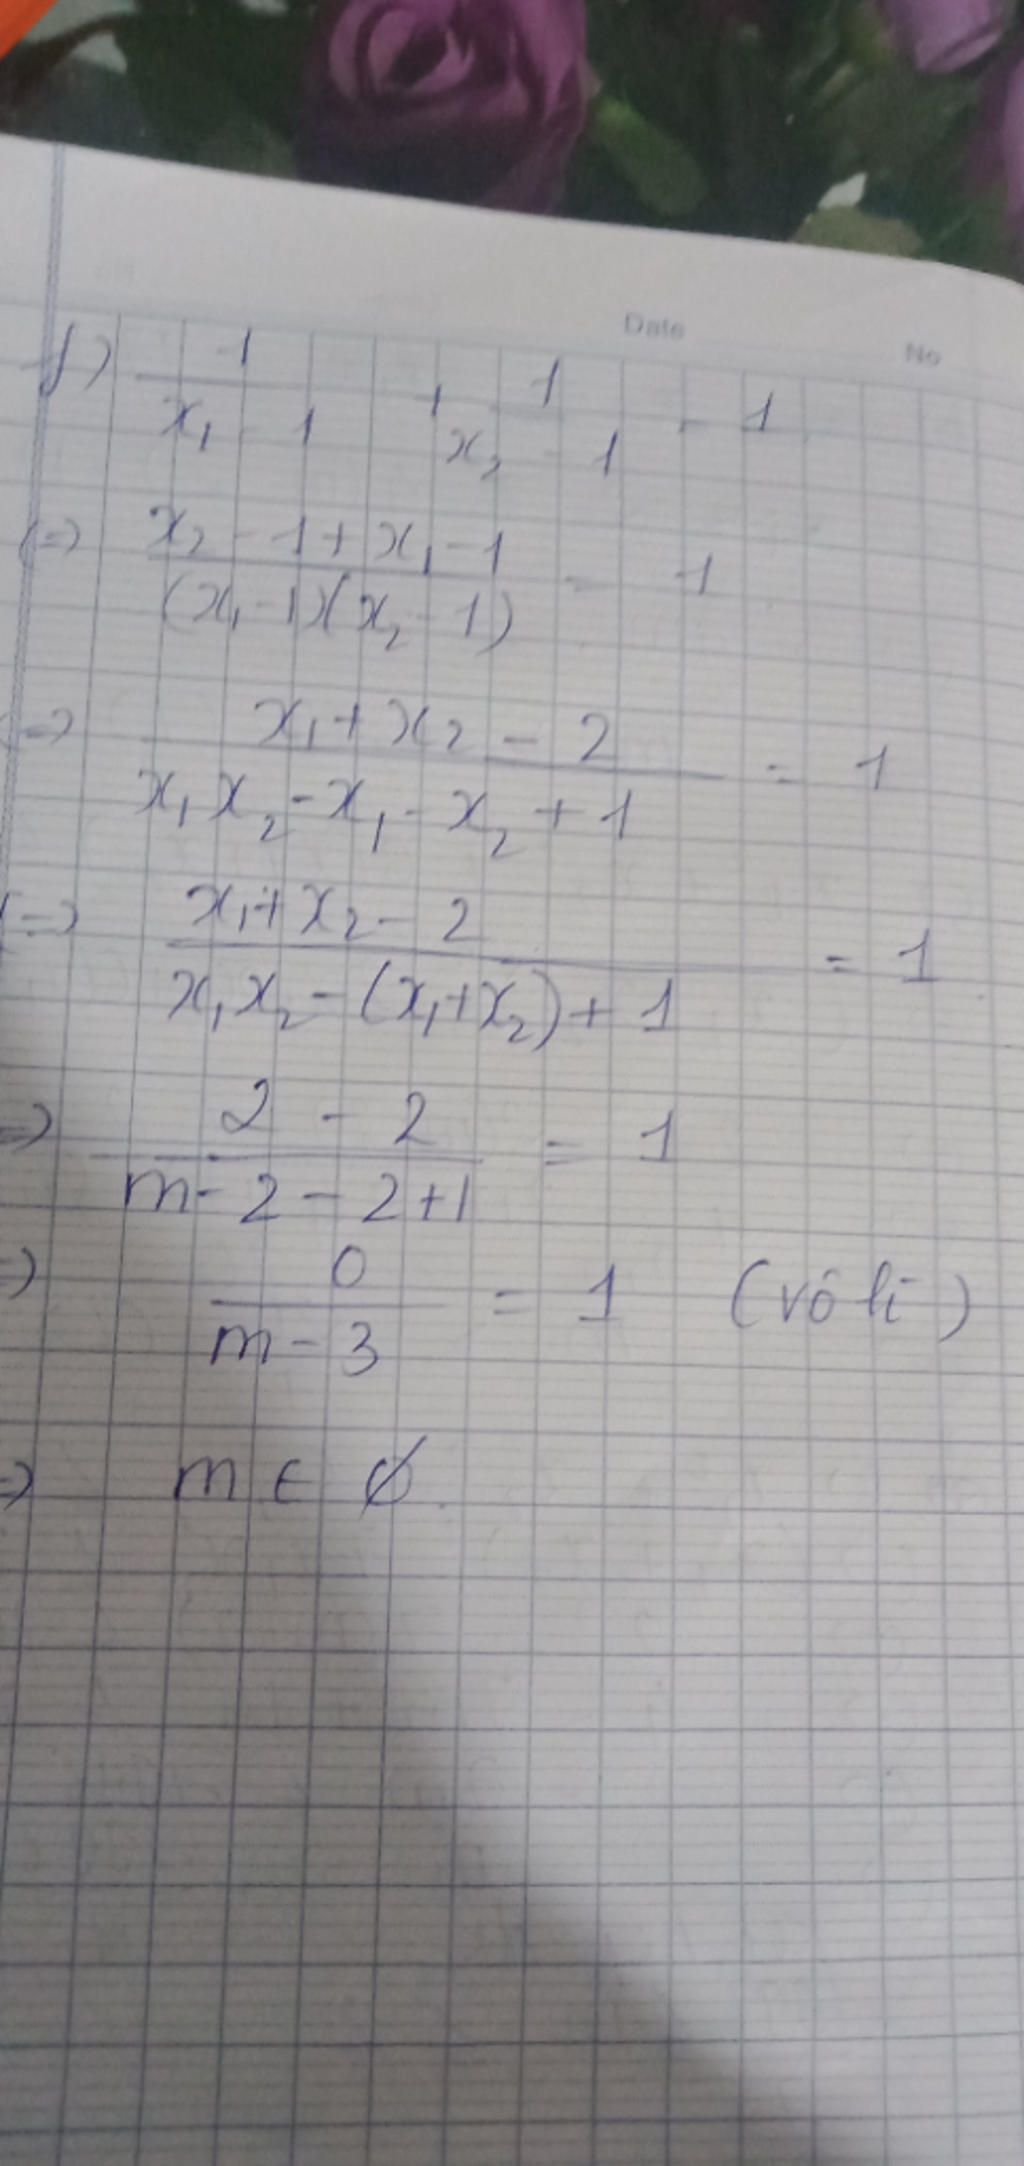 Date No
f) 1/(x₁ - 1) + 1/(x₂ - 1) = 1
(=) (x₂ - 1 + x₁ - 1)/((x₁ - 1)(x₂ - 1)) = 1
(=) (x₁ + x₂ - 2)/(x₁x₂ - x₁ - x₂ + 1) = 1
(=) (x₁ + x₂ - 2)/(x₁x₂ - (x₁ + x₂) + 1) = 1
=) (2 - 2)/(m - 2 - 2 + 1) = 1
=) 0/(m - 3) = 1 (vô lí)
=) m ∈ ∅.